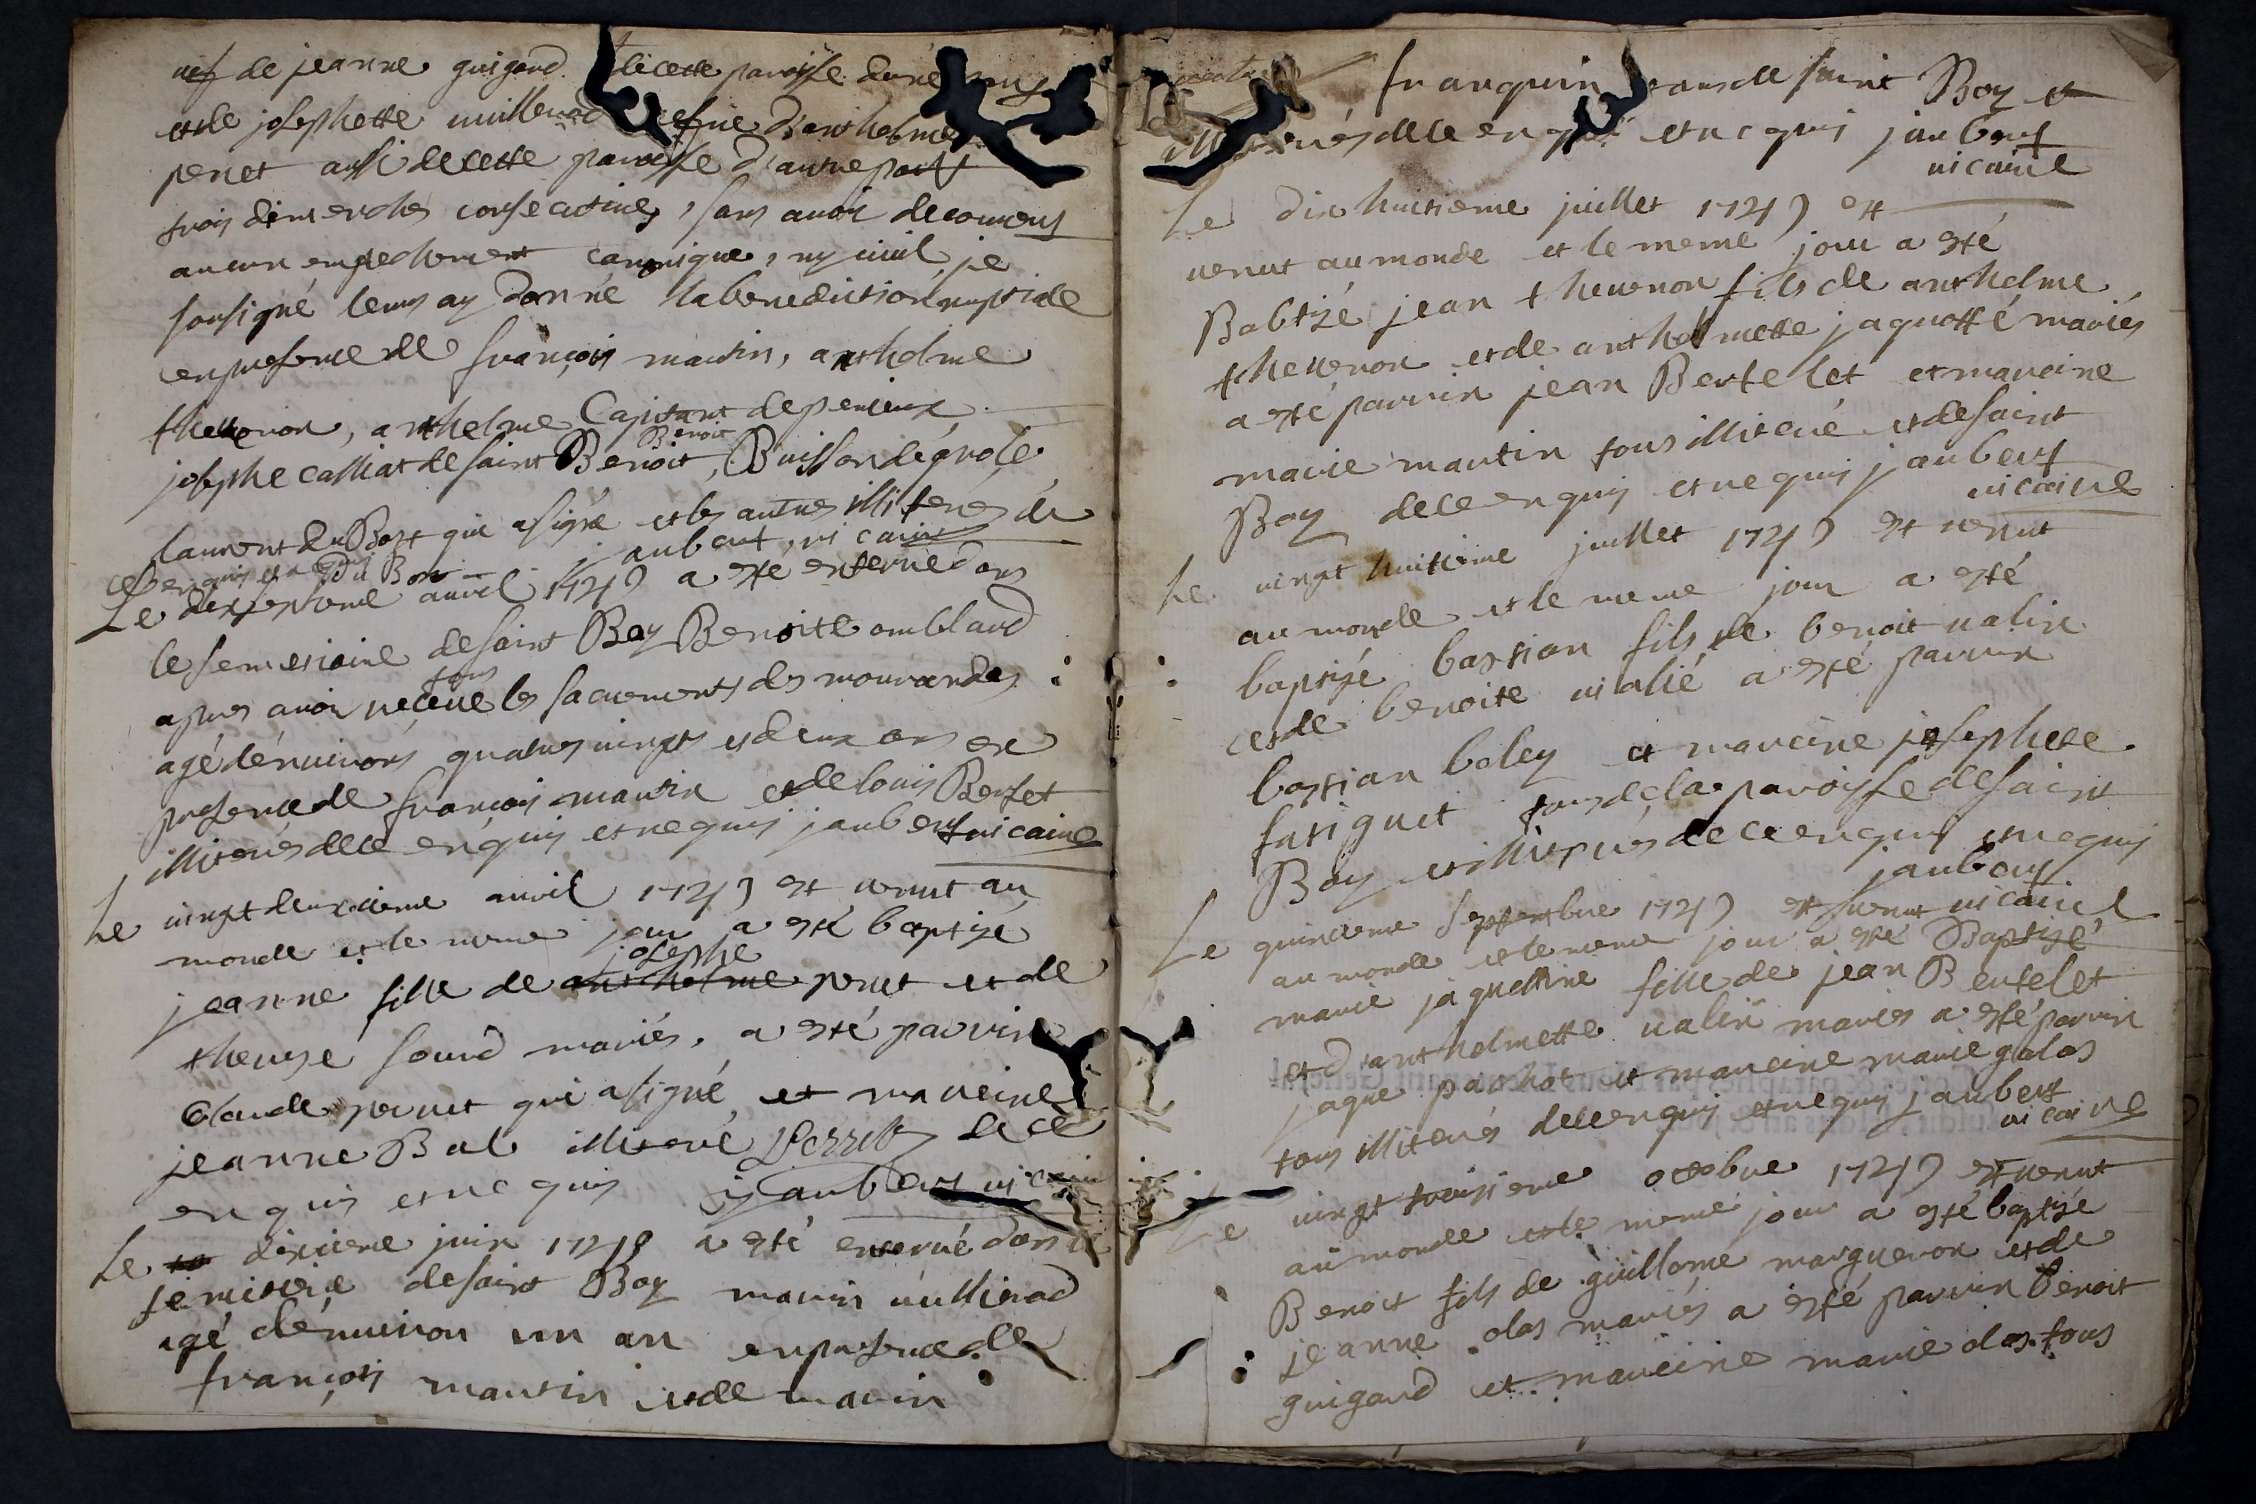 uef de jeanne guigard de cette paroisse dune
et de josephette millerad uefue d'anthelme
peret aussi de cette paroisse d'autre part
trois dimenches consecutives, sans auoir decouuers
aucun enpechement canonique, ny ciuil je
sousigné leurs ay donné la benediction nuptiale
en presence de françois martin, anthelme
theuenon, anthelme Capitant de perieux
Benoit
josephe calliat de saint Benoit, Buisson de grole
laurent du Bost qui a signé et les autres illiterés de
ce enquis j aubert, uicaire
Du Bost
Le dixseptieme auril 1749 a esté enterré dans
le semetiaire de saint Boy Benoite omblard
tous
apres auoir receue les sacrements des mourandes
agé d'énuirons quatres uingts et deux ans en
presence de françois martin et de louis Bertet
illiterés de ce enquis et requis jaubert uicaire
Le uingt deuxieme auril 1749 est uenut au
monde et le meme jour a esté baptisé
josephe
jeanne fille de anthelme peret et de
therese sourd mariés, a esté parrin
Claude perret qui a signé et mareine
jeanne Bal illiteré Perret de ce
enquis et requis jaubert uicaire
Le dixieme juin 1749 a esté enterré dans le
semiteire de saint Boy marin uullierad
agé d'énuiron un an en presence de
françois martin et de marin
franquin tous de saint Boy et
illiterés de ce enquis et requis jaubert
uicaire
Le dix huitieme juillet 1749 est
uenut au monde et le meme jour a esté
Babtizé jean theuenon fils de anthelme
theuenon et de anthelmette jaquotté mariés
a esté parrin jean Bertelet et mareine
marie martin tous illiteré et de saint
Boy de ce enquis et requis jaubert
uicaire
Le uingt huitieme juillet 1749 est uenut
au monde et le meme jour a esté
baptizé bastian fils de benoit ualin
et de benoite uialié a esté parrin
bastian boley et mareine josephete
fatiguet tous de la paroisse de saint
Boy et illiterés de ce enquis et requis
jaubert
uicaire
Le quinzieme septembre 1749 est uenut
au monde et le meme jour a esté Baptizé
marie jaquemine fille de jean Bertelet
et d'anthelmette ualin mariés a esté parrin
jaque pachot et mareine marie golas
tous illiterés de ce enquis et requis jaubert
uicaire
Le uingt troisieme octobre 1749 est uenut
au monde et le meme jour a esté baptizé
Benoit fils de guillome margueron et de
jeanne olas mariés a esté parrin benoit
guigard et mareine marie olas tous